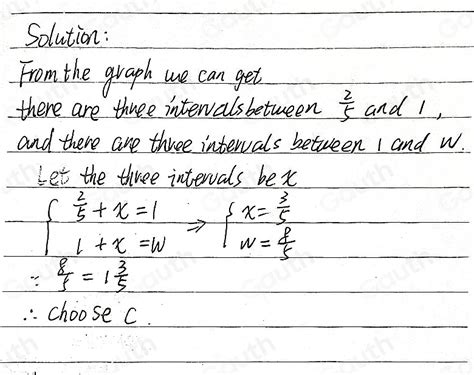 Solution:
From the graph we can get
there are three intervals between 2/5 and 1,
and there are three intervals between 1 and W.
Let the three intervals be x
{ 2/5 + x = 1 ⇒ { x = 3/5
1 + x = W    W = 8/5
∵ 8/5 = 1 3/5
∴ choose C.